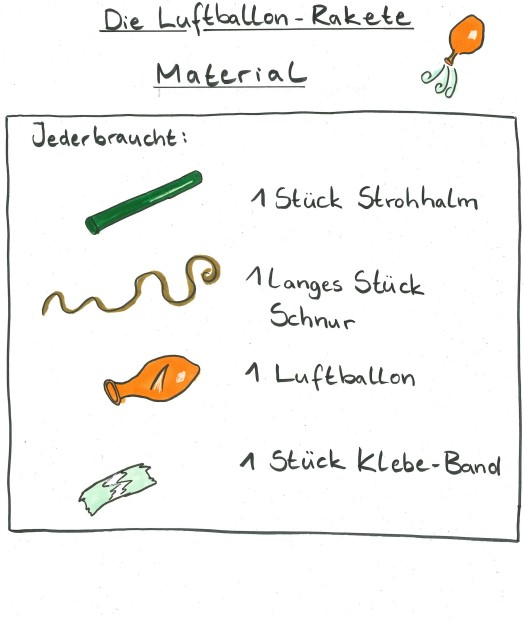 Die Luftballon-Rakete
Material
Jeder braucht:
1 Stück Strohhalm
1 Langes Stück
Schnur
1 Luftballon
1 Stück Klebe-Band